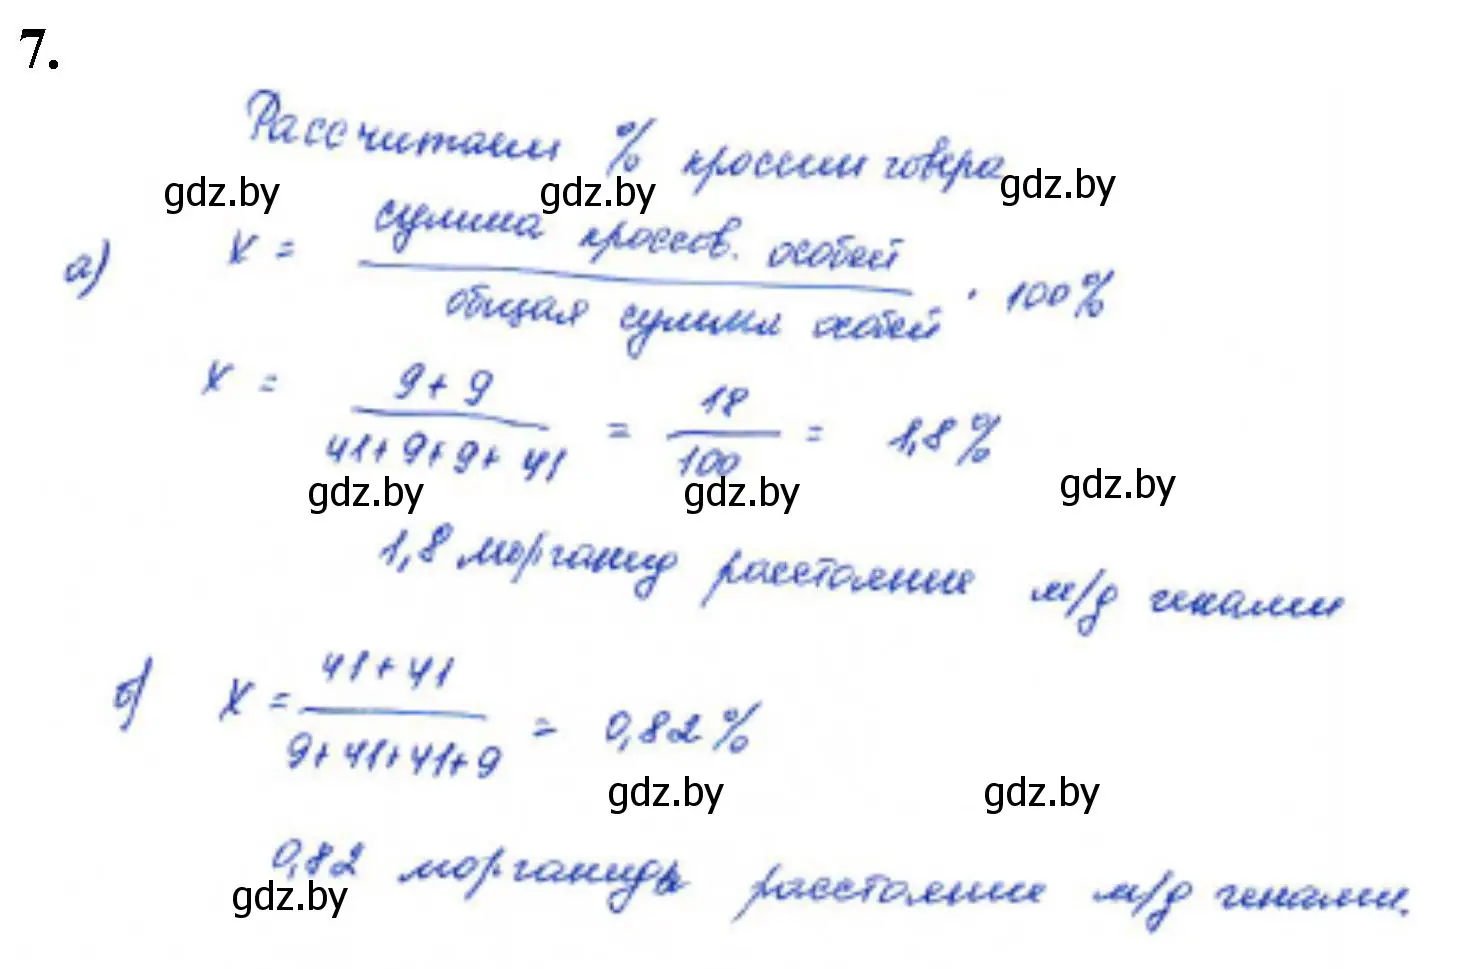 7.
Рассчитаем % кроссинговера
gdz.by gdz.by gdz.by
а) x = сумма кроссов. особей / общая сумма особей · 100%
x = 9+9 / 41+9+9+41 = 18 / 100 = 1,8%
gdz.by gdz.by gdz.by
1,8 морганид расстояние м/д генами
б) x = 41+41 / 9+41+41+9 = 0,82%
gdz.by gdz.by
0,82 морганиды расстояние м/д генами.
gdz.by